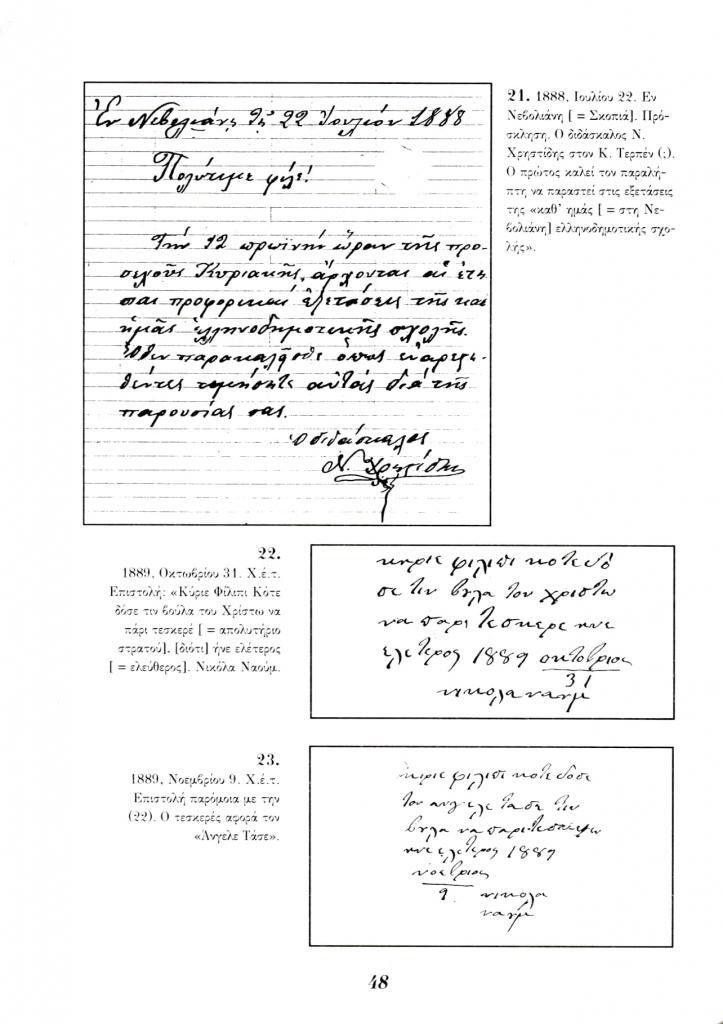 Ἐν Νεβολιάνῃ τῇ 22 Ἰουλίου 1888
Πολύτιμε φίλε!
Τὴν 12 πρωϊνὴν ὥραν τῆς προ-
σεχοῦς Κυριακῆς, ἄρχονται αἱ ἐτή-
σιαι προφορικαὶ ἐξετάσεις τῆς καθ'
ἡμᾶς ἑλληνοδημοτικῆς σχολῆς.
Ὅθεν παρακαλεῖσθε ὅπως εὐαρεσ-
θέντες τιμήσητε αὐτὰς διὰ τῆς
παρουσίας σας.
Ὁ διδάσκαλος
Ν. Χρηστίδης
21. 1888, Ιουλίου 22. Εν
Νεβολιάνη [ = Σκοπιά]. Πρό-
σκληση. Ο διδάσκαλος Ν.
Χρηστίδης στον Κ. Τερπέν (;).
Ο πρώτος καλεί τον παραλή-
πτη να παραστεί στις εξετάσεις
της «καθ' ημάς [ = στη Νε-
βολιάνη] ελληνοδημοτικής σχο-
λής».
22.
1889, Οκτωβρίου 31. Χ.έ.τ.
Επιστολή: «Κύριε Φίλιπι Κότε
δόσε τιν βούλα του Χρίστω να
πάρι τεσκερέ [ = απολυτήριο
στρατού], [διότι] ήνε ελέτερος
[ = ελεύθερος]. Νικόλα Ναούμ.
κηριε φιλιπι κοτε δό
σε τιν βυλα του χριστω
να παρι τεσκερε ηνε
ελετερος 1889 οκτοβριος
31
νικολα ναυμ
23.
1889, Νοεμβρίου 9. Χ.έ.τ.
Επιστολή παρόμοια με την
(22). Ο τεσκερές αφορά τον
«Άνγελε Τάσε».
κιριε φιλιπι κοτε δοσε
τον ανγελε τασε τιν
βυλα να παρι
ηνε ελετερος 1889
νοεβριος
9 νικολα
ναυμ
48